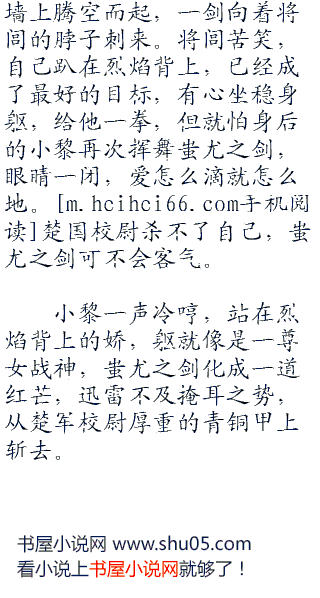 墙上腾空而起，一剑向着将
闾的脖子刺来。将闾苦笑，
自己趴在烈焰背上，已经成
了最好的目标，有心坐稳身
躯，给他一拳，但就怕身后
的小黎再次挥舞蚩尤之剑，
眼睛一闭，爱怎么滴就怎么
地。[m.hcihci66.com手机阅
读]楚国校尉杀不了自己，蚩
尤之剑可不会客气。
小黎一声冷哼，站在烈
焰背上的娇，躯就像是一尊
女战神，蚩尤之剑化成一道
红芒，迅雷不及掩耳之势，
从楚军校尉厚重的青铜甲上
斩去。
书屋小说网 www.shu05.com
看小说上书屋小说网就够了！